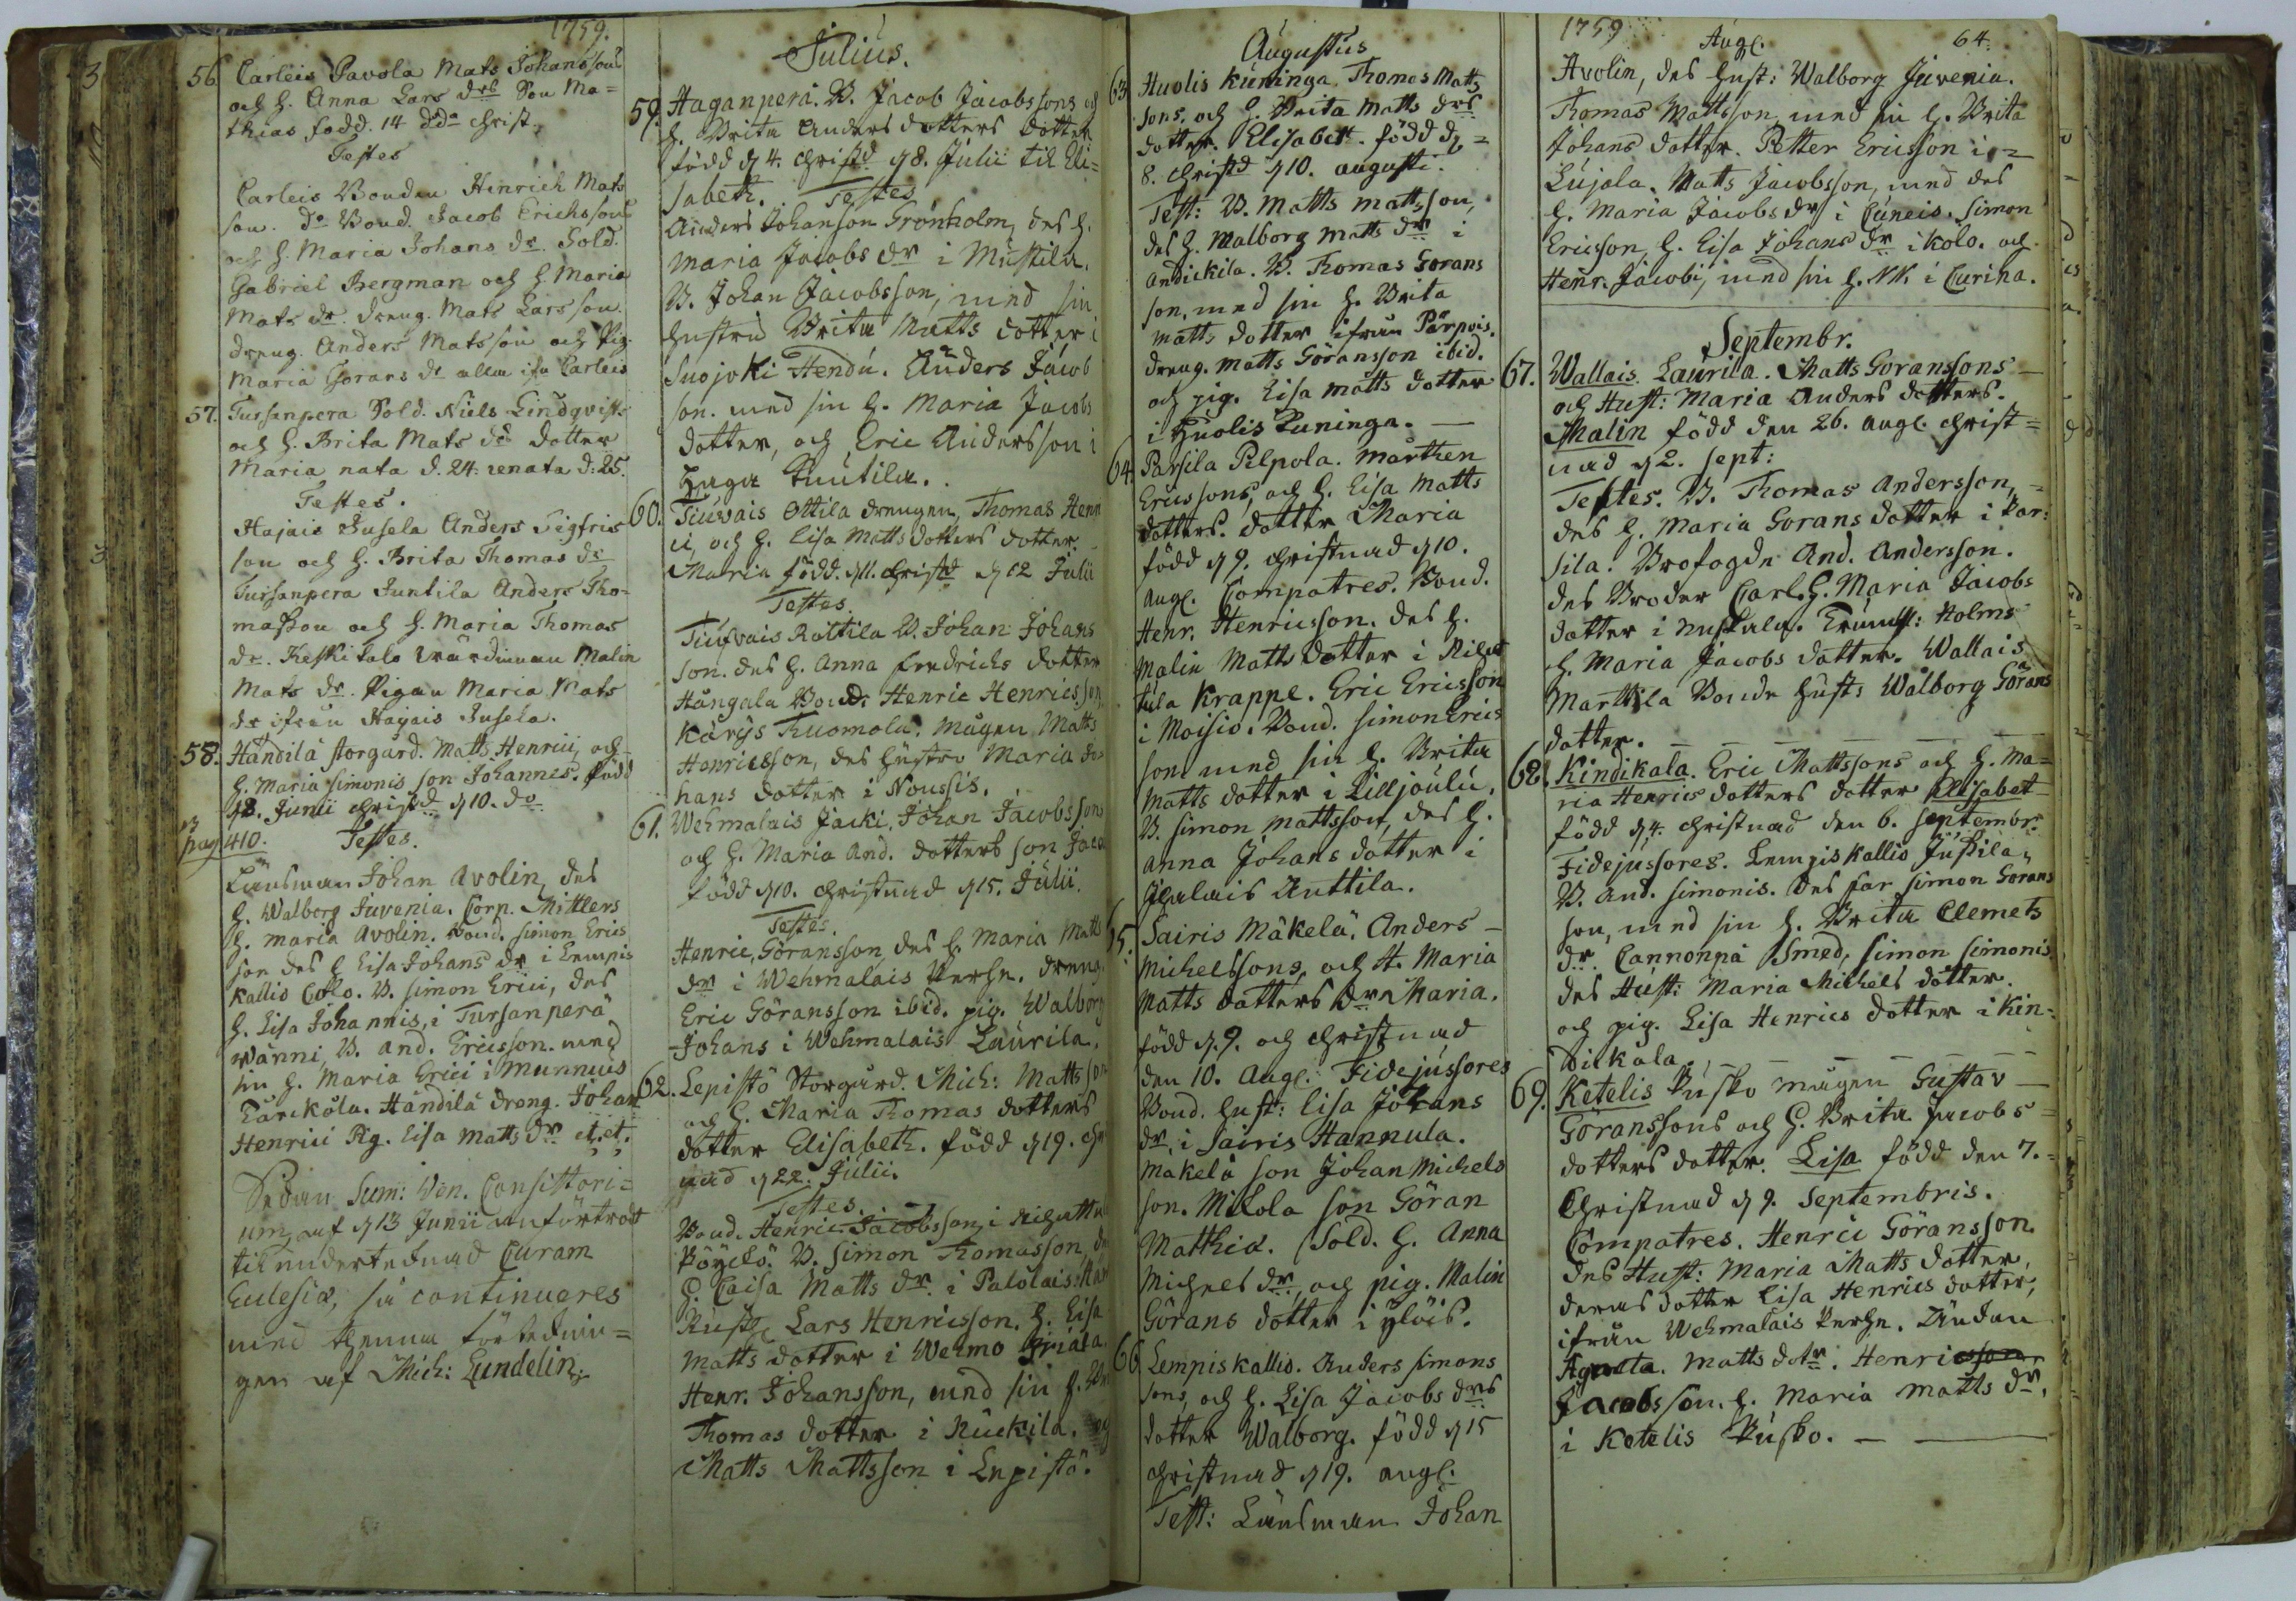 1759.
56 Carleis Pavola Mats Johanssons
och h. Anna Lars drs Son Ma=
thias född. 14 do do Christ.
Testes
Carleis Bonden Hinrich Mats
son. do Bond. Jacob Erichsson
och h. Maria Johans dr. Sold.
Gabriel Bergman och h. Maria
Mats dr. dreng. Mats Larsson.
dreng. Anders Matsson och Pig.
Maria Görans dr alla ifr Carleis
57. Tursanpera Sold. Niels Lindqvist
och h. Brita Mats drs dotter
Maria nata d. 24. renata d: 25.
Testes.
Hajais Jusela Anders Sigfrids
son och h. Brita Thomas dr
Tursanpera Juntila Anders Tho=
masson och h. Maria Thomas
dr. Keskitalo Malin
Mats dr. Pigan Maria Mats
dr ifrån Hajais Jusela.
58. Händilä storgård. Matts Henrici, och
h. Maria Simonis son Johannes. född
d 8. Junii christd d 10. do
pag 410. Testes.
Länsman Johan Avolin, des
h. Walborg Juvenia. Corp. Mittlers
h. Maria Avolin. Bond. Simon Erics
son des h Lisa Johans dr i Lempis
kallio Colo. B. Simon Erici, des
h. Lisa Johannis, i Tursanperä
wänni, B. And. Ericsson. med
sin h. Maria Erici i Munnuis
Tärckölä. Händilä dreng. Johan
Henrici Pig. Lisa Matts dr et. et.
Sedan Sum: Ven. Consistori=
um, af d 13 Junii anförtrodt
til undertecknad Curam
Eclesiæ, så continueres
med denna förtecknin=
gen af Mich: Lundelin.
Julius.
59. Haganperä. B. Jacob Jacobssons och
h. Brita Anders dotters dotter
född d 4. christd d 8. Julii til Eli=
sabeth. Testes
Anders Johanson Grönholm, des h.
Maria Jacobs dr i Mustila.
B. Johan Jacobsson, med sin
hustru Brita Matts dotter i
Suojoki Hendu. Anders Jacob
son. med sin h. Maria Jacobs
dotter, och Eric Andersson i
Haga Knutila.
60. Tiuvais Ottila drengen, Thomas Henri
ci, och h. Lisa Matts dotters dotter.
Maria född. d 11. christd d 12 Julii
Testes.
Tiuvais Rottila B. Johan Johans
son. des h. Anna Fredrichs dotter
Hångala Bond. Henric Henricsson
Kärijs Tuomola. mågen Matts
Henricsson, des hustro Maria Jo
hans dotter i Noussis.
61. Wehmalais Jacki. Johan Jacobssons
och h. Maria And. dotters son Jacob
född d 10. christnad d 15. Julii.
Testes.
Henric, Göransson, des h. Maria Matts
dr i Wehmalais Perhe. dreng.
Eric Göransson ibid. pig. Walborg
Johans i Wehmalais Laurila.
62. Lepistö Storgård. Mich: Mattsson
och h. Maria Thomas dotters
dotter Elisabeth. född d 19. chr
nad d 22. Julii.
Testes.
Bond. Henric Jacobsson, i
Pöyelö. B. Simon Thomasson, des
h. Caisa Matts dr. i Palolais.
Lars Henricsson. h. Lisa
Matts dotter i Wehmo
Henr. Johansson, med sin h.
Thomas dotter i Ruokila. och
Matts Mattsson i Lepistö.
Augustus
63 Huolis Kuninga. Thomas Matts
sons, och h. Brita Matts drs
dotter. Elisabet. född d =
8. christd d 10. augusti.
Test: B. Matts Mattsson,
des h. Walborg Matts dr i
Andickila. B. Thomas Görans
son, med sin h. Brita
Matts dotter ifrån Pärpois.
dreng. Matts Göransson ibid.
och pig. Lisa Matts dotter
i Huolis Kuninga. —
64. Parsila Pelpola. Mårthen
Ericssons, och h. Lisa Matts
dotters. dotter Maria
född d 9. christnad d 10.
Aug. Compatres. Bond.
Henr. Henricsson. des h.
Malin Matts dotter i
Krappe. Eric Ericsson
i Moisio. Bond. Simon Erics
son med sin h. Brita
Matts dotter i Lilljoulu.
B. Simon Mattsson, des h.
Anna Johans dotter i
Anttila.
65. Sairis Mäkelä. Anders —
Michelssons, och H. Maria
Matts dotters dr Maria.
född d. 9. och christnad
den 10. Aug. Fidejussores
Bond. hust: Lisa Johans
dr. i Sairis Hannula.
Mäkelä son Johan Michels
son. Mikola son Göran
Matthiæ. Sold. h. Anna
Michels dr. och pig. Malin
Görans dotter i ylöis.
66 Lempiskallio. Anders Simons
sons, och h. Lisa Jacobs drs
dotter Walborg. född d 15
christnad d 19. aug.
Test: Länsman Johan
1759 Aug. 64.
Avolin, des hust: Walborg Juvenia.
Thomas Mattsson, med sin h. Brita
Johans dotter. Petter Ericsson i =
Lujala. Matts Jacobsson, med des
h. Maria Jacobs dr i Cuneis. Simon
Ericsson, h. Lisa Johans dr i Kolo. och
Henr. Jacobi, med sin h. NN. i Curina.
Septembr.
67. Wallais Laurila. Matts Göranssons —
och Hust: Maria Anders dotters.
Malin född den 26. aug. christ=
nad d 2. sept:
Testes. B. Thomas Andersson, =
des h. Maria Görans dotter i Par:
sila. Brofogde And. Andersson.
des Broder Carl. h. Maria Jacobs
dotter i Nuskala. Holms
h. Maria Jacobs dotter. Wallais
Marttila Bonde hust: Walborg Görans
dotter. — — —
68. Kindikala. Eric Mattssons och h. Ma=
ria Henrics dotters dotter Elisabet
född d 4. christnad den 6. septembr.
Fidejussores. Lempiskallio Jussila,
B. And. Simonis. des far Simon Görans
son, med sin h. Brita Clemets
dr. Cannonpä Smed, Simon Simonis
des Hust: Maria Michels dotter.
och pig. Lisa Henrics dotter i Kin=
dikala. — — —
69. Ketelis Pusko mågen Gustav —
Göranssons och h. Brita Jacobs =
dotters dotter. Lisa född den 7.
Christnad d 9. Septembris.
Compatres. Henric Göransson.
des Hust: Maria Matts dotter,
deras dotter Lisa Henrics dotter,
ifrån Wehmalais Perhe. Änckan
Agneta. Matts dotr. Henricsson
Jacobsson. h. Maria Matts dr.
i Ketelis Pusko. — —